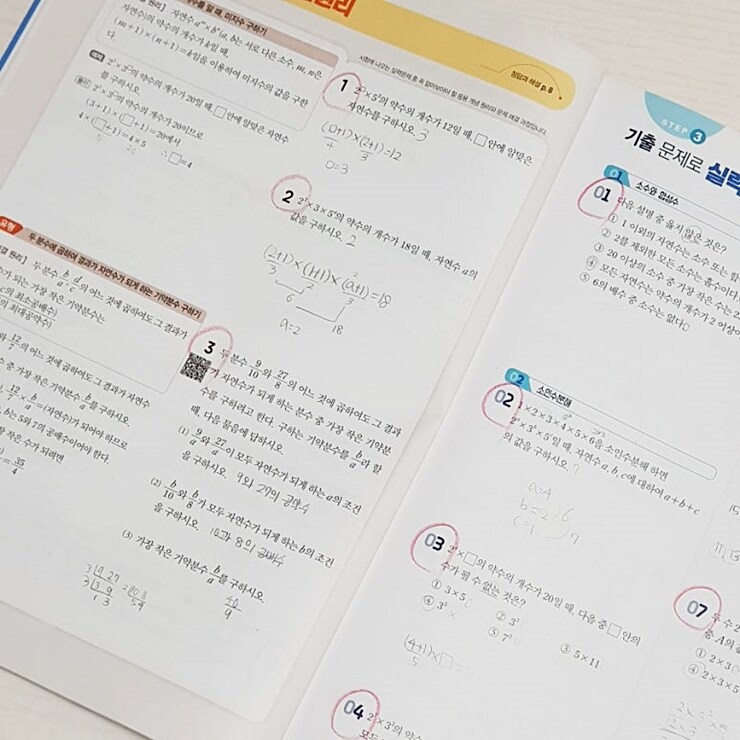 수를 알 때, 미지수 구하기
자연수 aᵐ×bⁿ(a, b는 서로 다른 소수, m, n은
자연수)의 약수의 개수가 k일 때,
(m+1)×(n+1)=k임을 이용하여 미지수의 값을 구한
다.
의 약수의 개수가 20일 때, □ 안에 알맞은 자연수
를 구하시오.
의 약수의 개수가 20이므로
(3+1)×(□+1)=20에서
4×(□+1)=4×5 ∴ □=4
유형
두 분수에 곱하여 결과가 자연수가 되게 하는 기약분수 구하기
두 분수 b/a, d/c의 어느 것에 곱하여도 그 경과가
수가 되는 가장 작은 기약분수는
의 최소공배수)
의 최대공약수)
의 어느 것에 곱하여도 그 결과가 자연수
중 가장 작은 기약분수 b/a를 구하시오.
=(자연수)가 되어야 하므로
b는 5와 7의 공배수이어야 한다.
작은 수가 되려면
=35/4
원리
정답과 해설 p.8
1
의 약수의 개수가 12일 때, □ 안에 알맞은
자연수를 구하시오. 3
(□+1)×(2+1)=12
4 3
□=3
2
2²×3×5ᵃ의 약수의 개수가 18일 때, 자연수 a의
값을 구하시오. 2
(2+1)×(1+1)×(a+1)=18
3 2 3
6
18
a=2
3
두 분수 9/10와 27/8의 어느 것에 곱하여도 그 결과
가 자연수가 되게 하는 분수 중 가장 작은 기약분
수를 구하려고 한다. 구하는 기약분수를 b/a라 할
때, 다음 물음에 답하시오.
(1) 9/a와 27/a이 모두 자연수가 되게 하는 a의 조건
을 구하시오. 9와 27의 공약수
(2) b/10와 b/8가 모두 자연수가 되게 하는 b의 조건
을 구하시오. 10과 8의 공배수
(3) 가장 작은 기약분수 b/a를 구하시오.
40/9
3 9 27
3 3 9
1 3
2 10 8
5 4
STEP 3
기출 문제로 실력
01 소수와 합성수
01
다음 설명 중 옳지 않은 것은?
① 1 이외의 자연수는 소수 또는 합
② 2를 제외한 모든 소수는 홀수이다
③ 20 이상의 소수 중 가장 작은 수는 2
④ 모든 자연수는 약수의 개수가 2 이상이
⑤ 6의 배수 중 소수는 없다
02 소인수분해
02
1×2×3×4×5×6을 소인수분해 하면
일 때, 자연수 a, b, c에 대하여 a+b+c
의 값을 구하시오. 7
a=4
b=2
c=1
03
2⁴×□의 약수의 개수가 20일 때, 다음 중 □ 안의
수가 될 수 없는 것은?
① 3×5
② 3³
③ 5×11
(4+1)×□
5
04
07
두 수 2
중 A의 값
① 2×3
④ 2×3×5